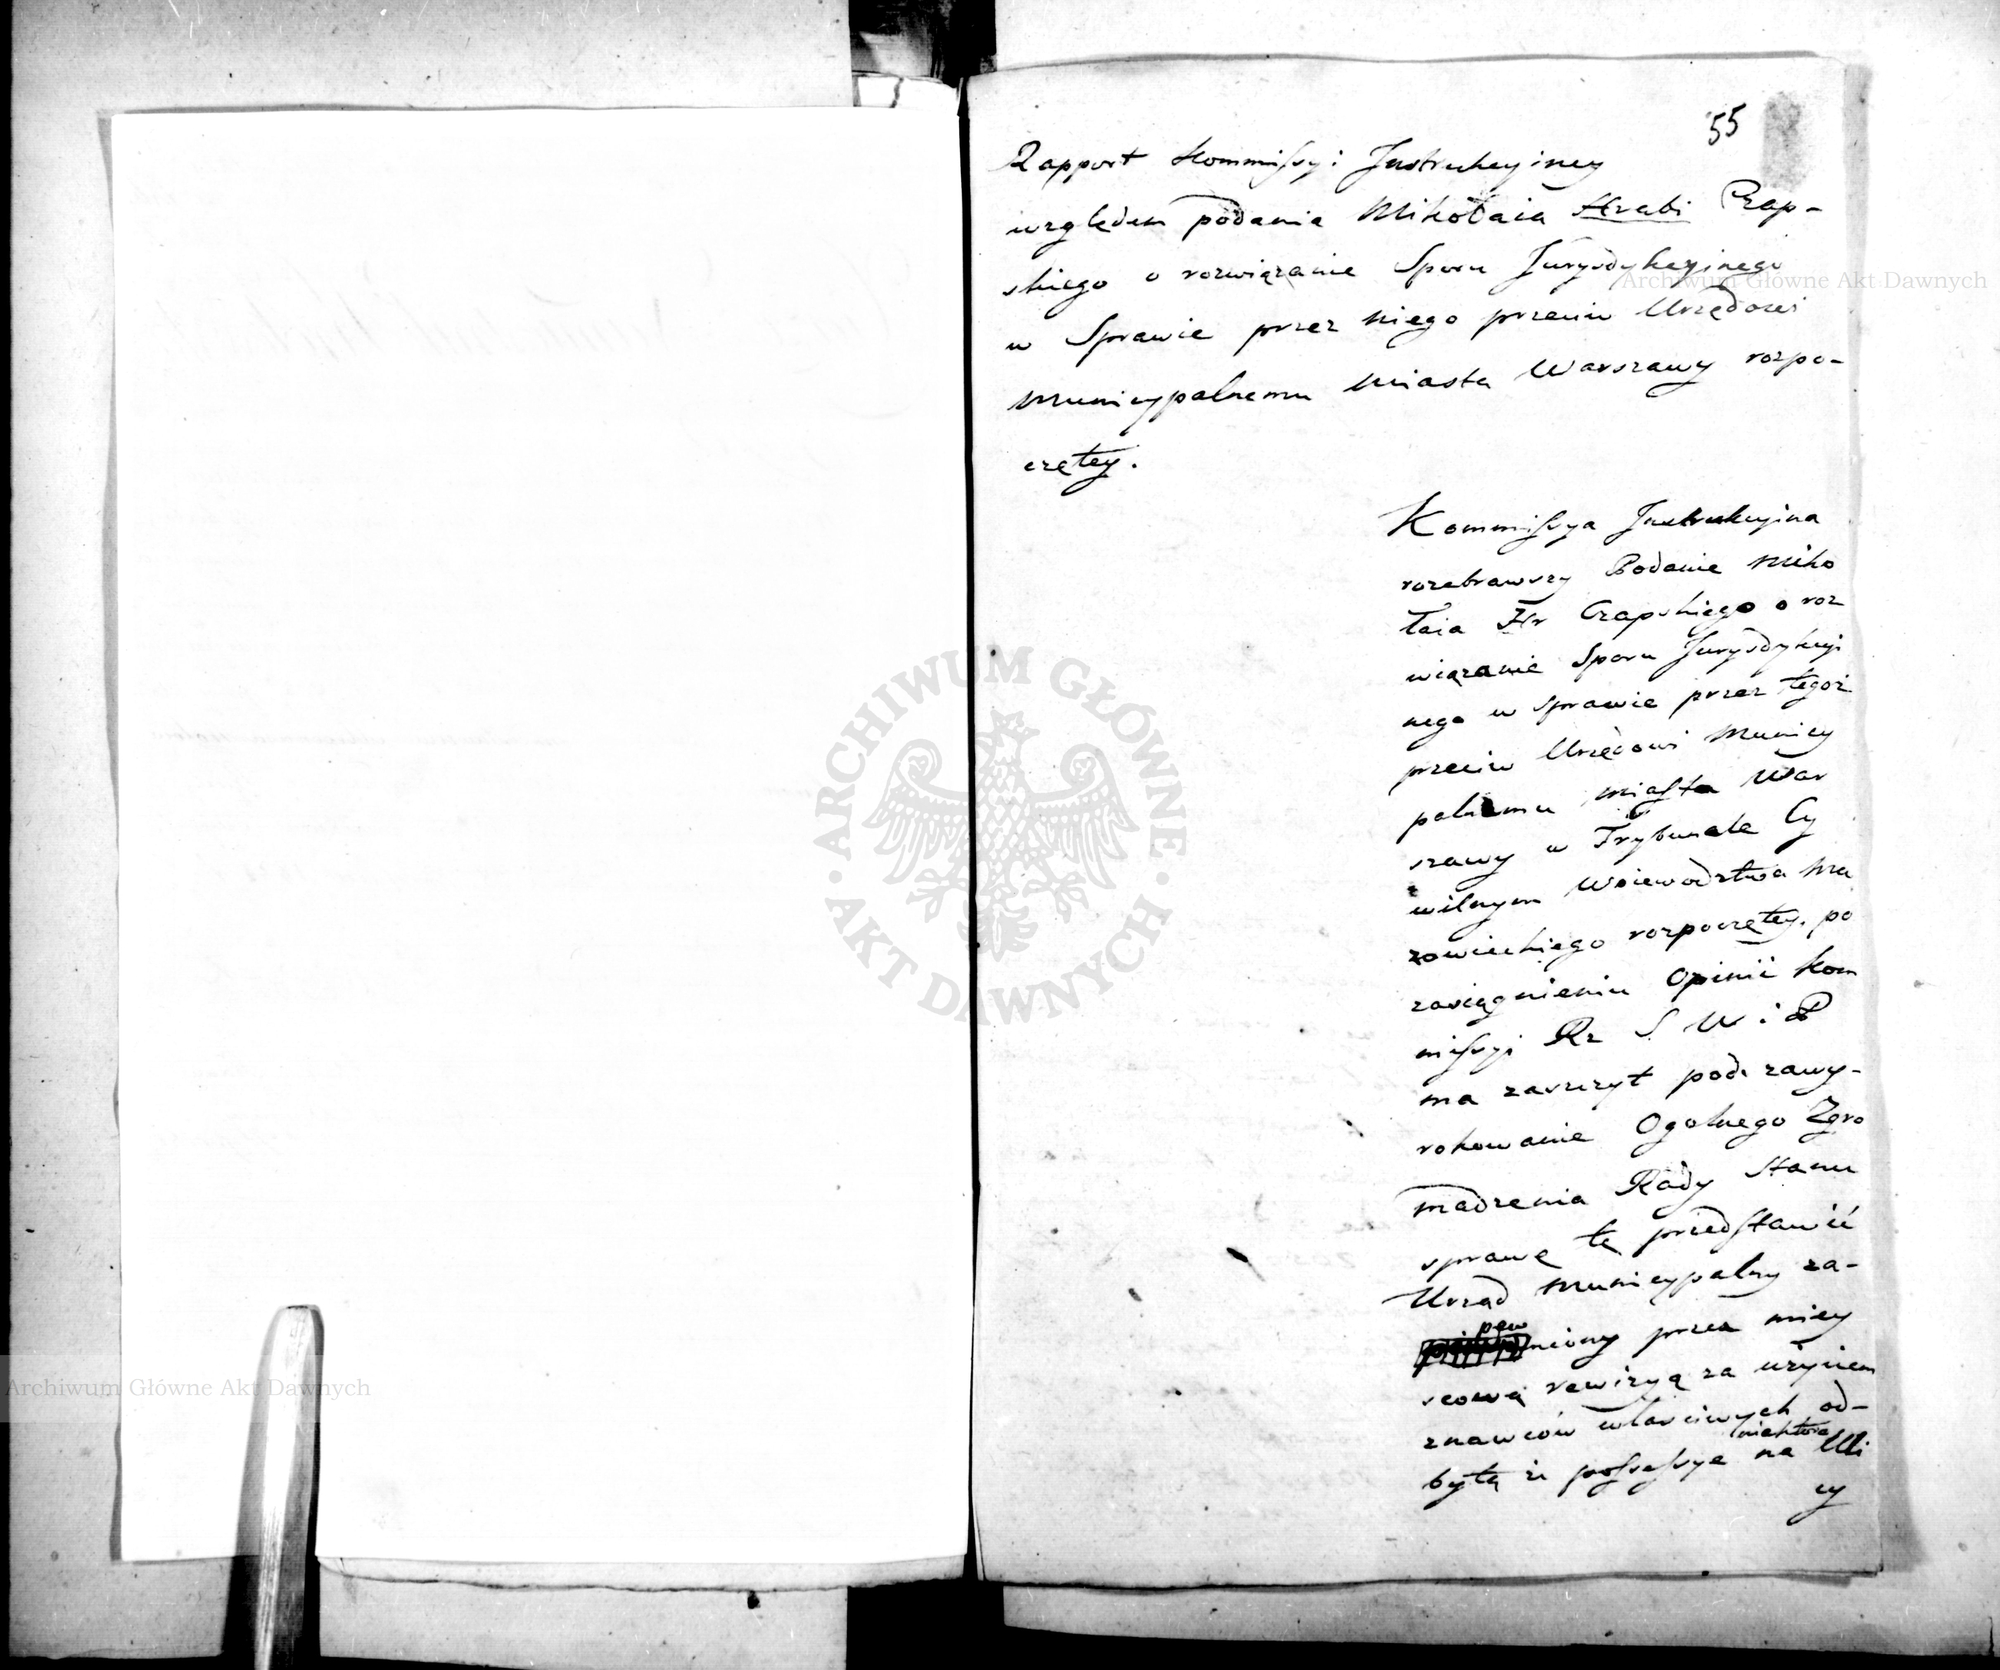 55
Rapport Kommissyi Instrukcyiney
względem podania Mikołaia Hrabi Czap-
skiego o rozwiązanie Sporu Jurysdykcyinego
w Sprawie przez niego przeciw Urzędowi
Municypalnemu Miasta Warszawy rozpo-
czętey.
Kommissya Instrukcyina
rozebrawszy Podanie Miko
łaia Hr Czapskiego o roz
wiązanie Sporu Jurysdykcyi
nego w Sprawie przez tegoż
przeciw Urzędowi Municy
palnemu Miasta War
szawy w Trybunale Cy
wilnym Woiewodztwa Ma
zowieckiego rozpoczętey, po
zasiągnieniu Opinii Kom
missyi Rz S W i P
ma zaszczyt pod zawy-
rokowanie Ogolnego Zgro
madzenia Rady Stanu
sprawę tę przedstawić
Urząd Municypalny za-
pew
niony przez miey
scową rewizyą za użyciem
znawców właściwych od-
niektóre
bytą iż possessye na Uli
cy
Archiwum Główne Akt Dawnych
Archiwum Główne Akt Dawnych
ARCHIWUM GŁÓWNE
AKT DAWNYCH